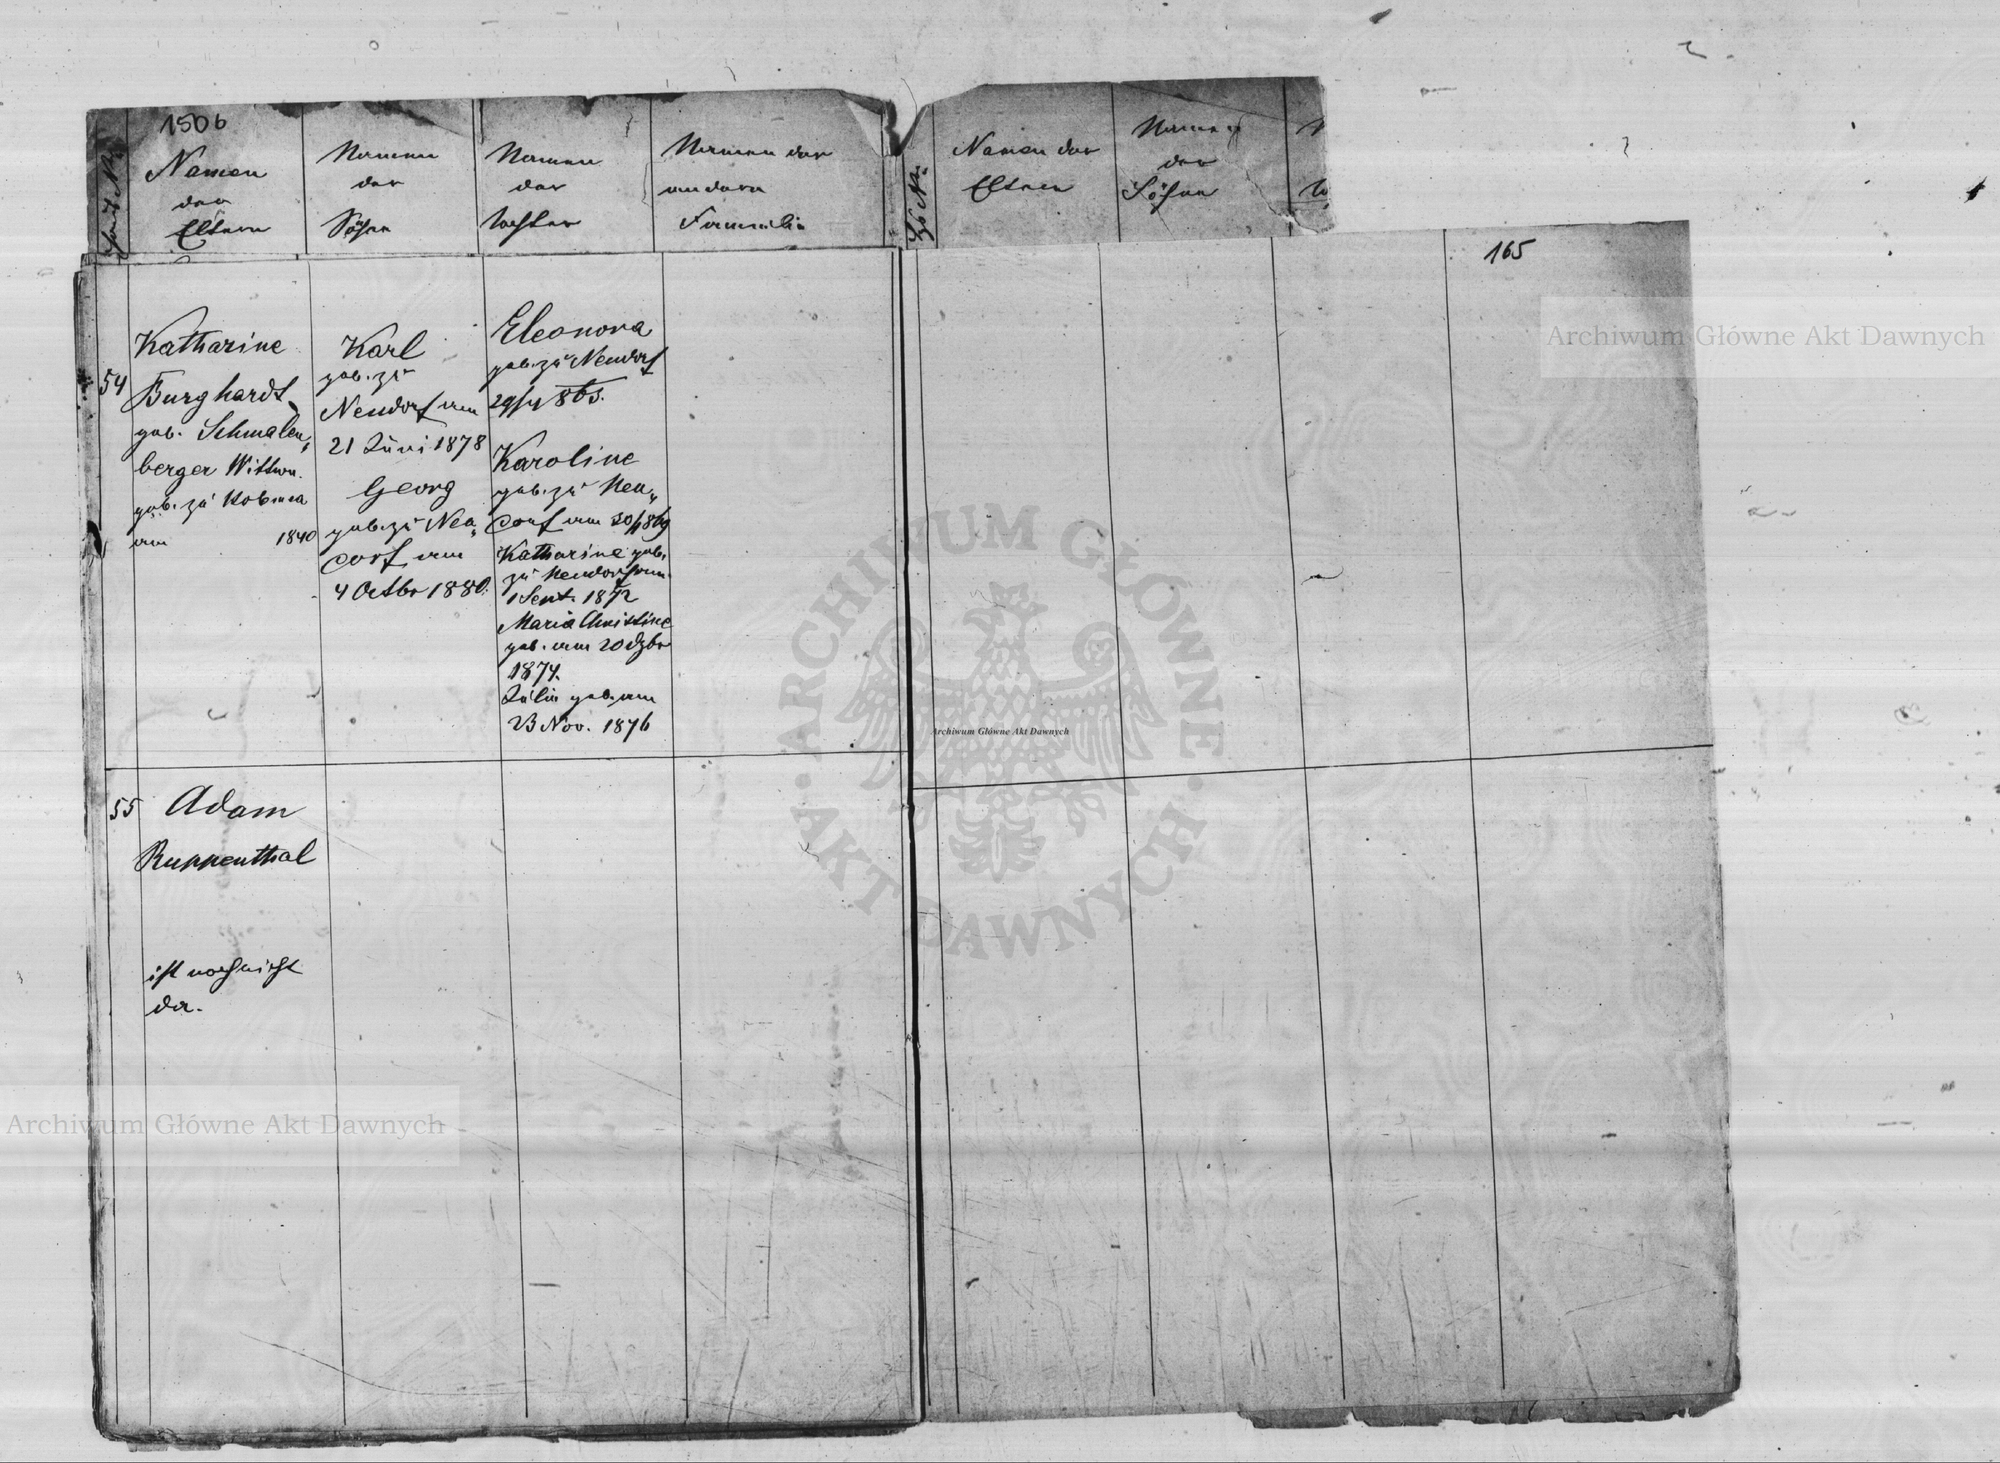 1506
Namen
der
Eltern
Namen
der
Söhne
Namen
der
Töchter
Namen der
andern
Familie
Namen der
Eltern
Namen
der
Söhne
165
54
Katharine
Burghardt
geb. Schmalen„
berger Wittwe.
geb. zu
am 1840
Karl
geb. zu
Neudorf am
21 Juni 1878
Georg
geb. zu Neu„
dorf am
4 Octbr 1880.
Eleonora
geb. zu Neudorf
Karoline
geb. zu Neu„
dorf am
Katharine geb.
zu Neudorf am
1 Sept. 1872
Maria Christine
geb. am 20 Dzbr
1874.
Julie geb. am
23 Nov. 1876
55
Adam
Ruppenthal
ist noch nicht
da.
Archiwum Główne Akt Dawnych
ARCHIWUM GŁÓWNE · AKT DAWNYCH ·
Archiwum Główne Akt Dawnych
Archiwum Główne Akt Dawnych